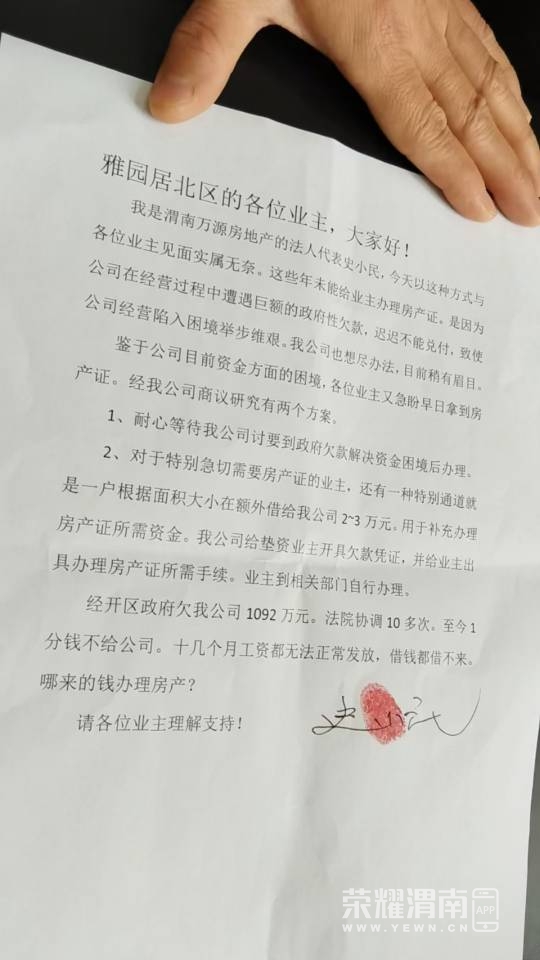 雅园居北区的各位业主，大家好！
我是渭南万源房地产的法人代表史小民，今天以这种方式与
各位业主见面实属无奈。这些年未能给业主办理房产证。是因为
公司在经营过程中遭遇巨额的政府性欠款，迟迟不能兑付，致使
公司经营陷入困境举步维艰。我公司也想尽办法，目前稍有眉目。
鉴于公司目前资金方面的困境，各位业主又急盼早日拿到房
产证。经我公司商议研究有两个方案。
1、耐心等待我公司讨要到政府欠款解决资金困境后办理。
2、对于特别急切需要房产证的业主，还有一种特别通道就
是一户根据面积大小在额外借给我公司2~3万元。用于补充办理
房产证所需资金。我公司给垫资业主开具欠款凭证，并给业主出
具办理房产证所需手续。业主到相关部门自行办理。
经开区政府欠我公司1092万元。法院协调10多次。至今1
分钱不给公司。十几个月工资都无法正常发放，借钱都借不来。
哪来的钱办理房产？
请各位业主理解支持！
史小民
荣耀渭南APP
WWW.YEWN.CN